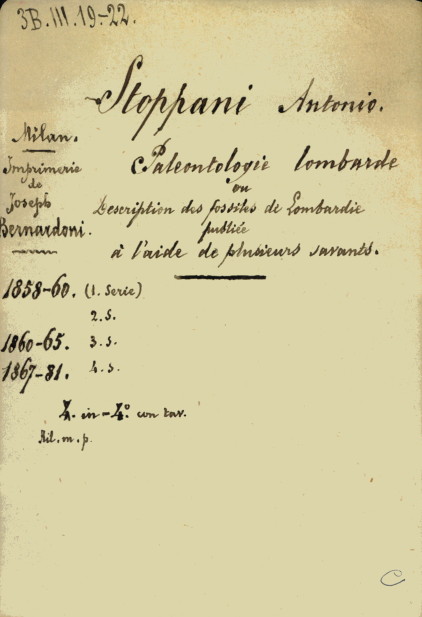 3B.III.19-22.
Stoppani Antonio.
Milan.
Imprimerie
de
Joseph
Bernardoni.
Paleontologie lombarde
ou
Description des fossiles de Lombardie
publiée
à l'aide de plusieurs savants.
1858-60. (1. Serie)
2. S.
1860-65. 3. S.
1867-81. 4. S.
4. in-4° con tav.
Ril. m. p.
C